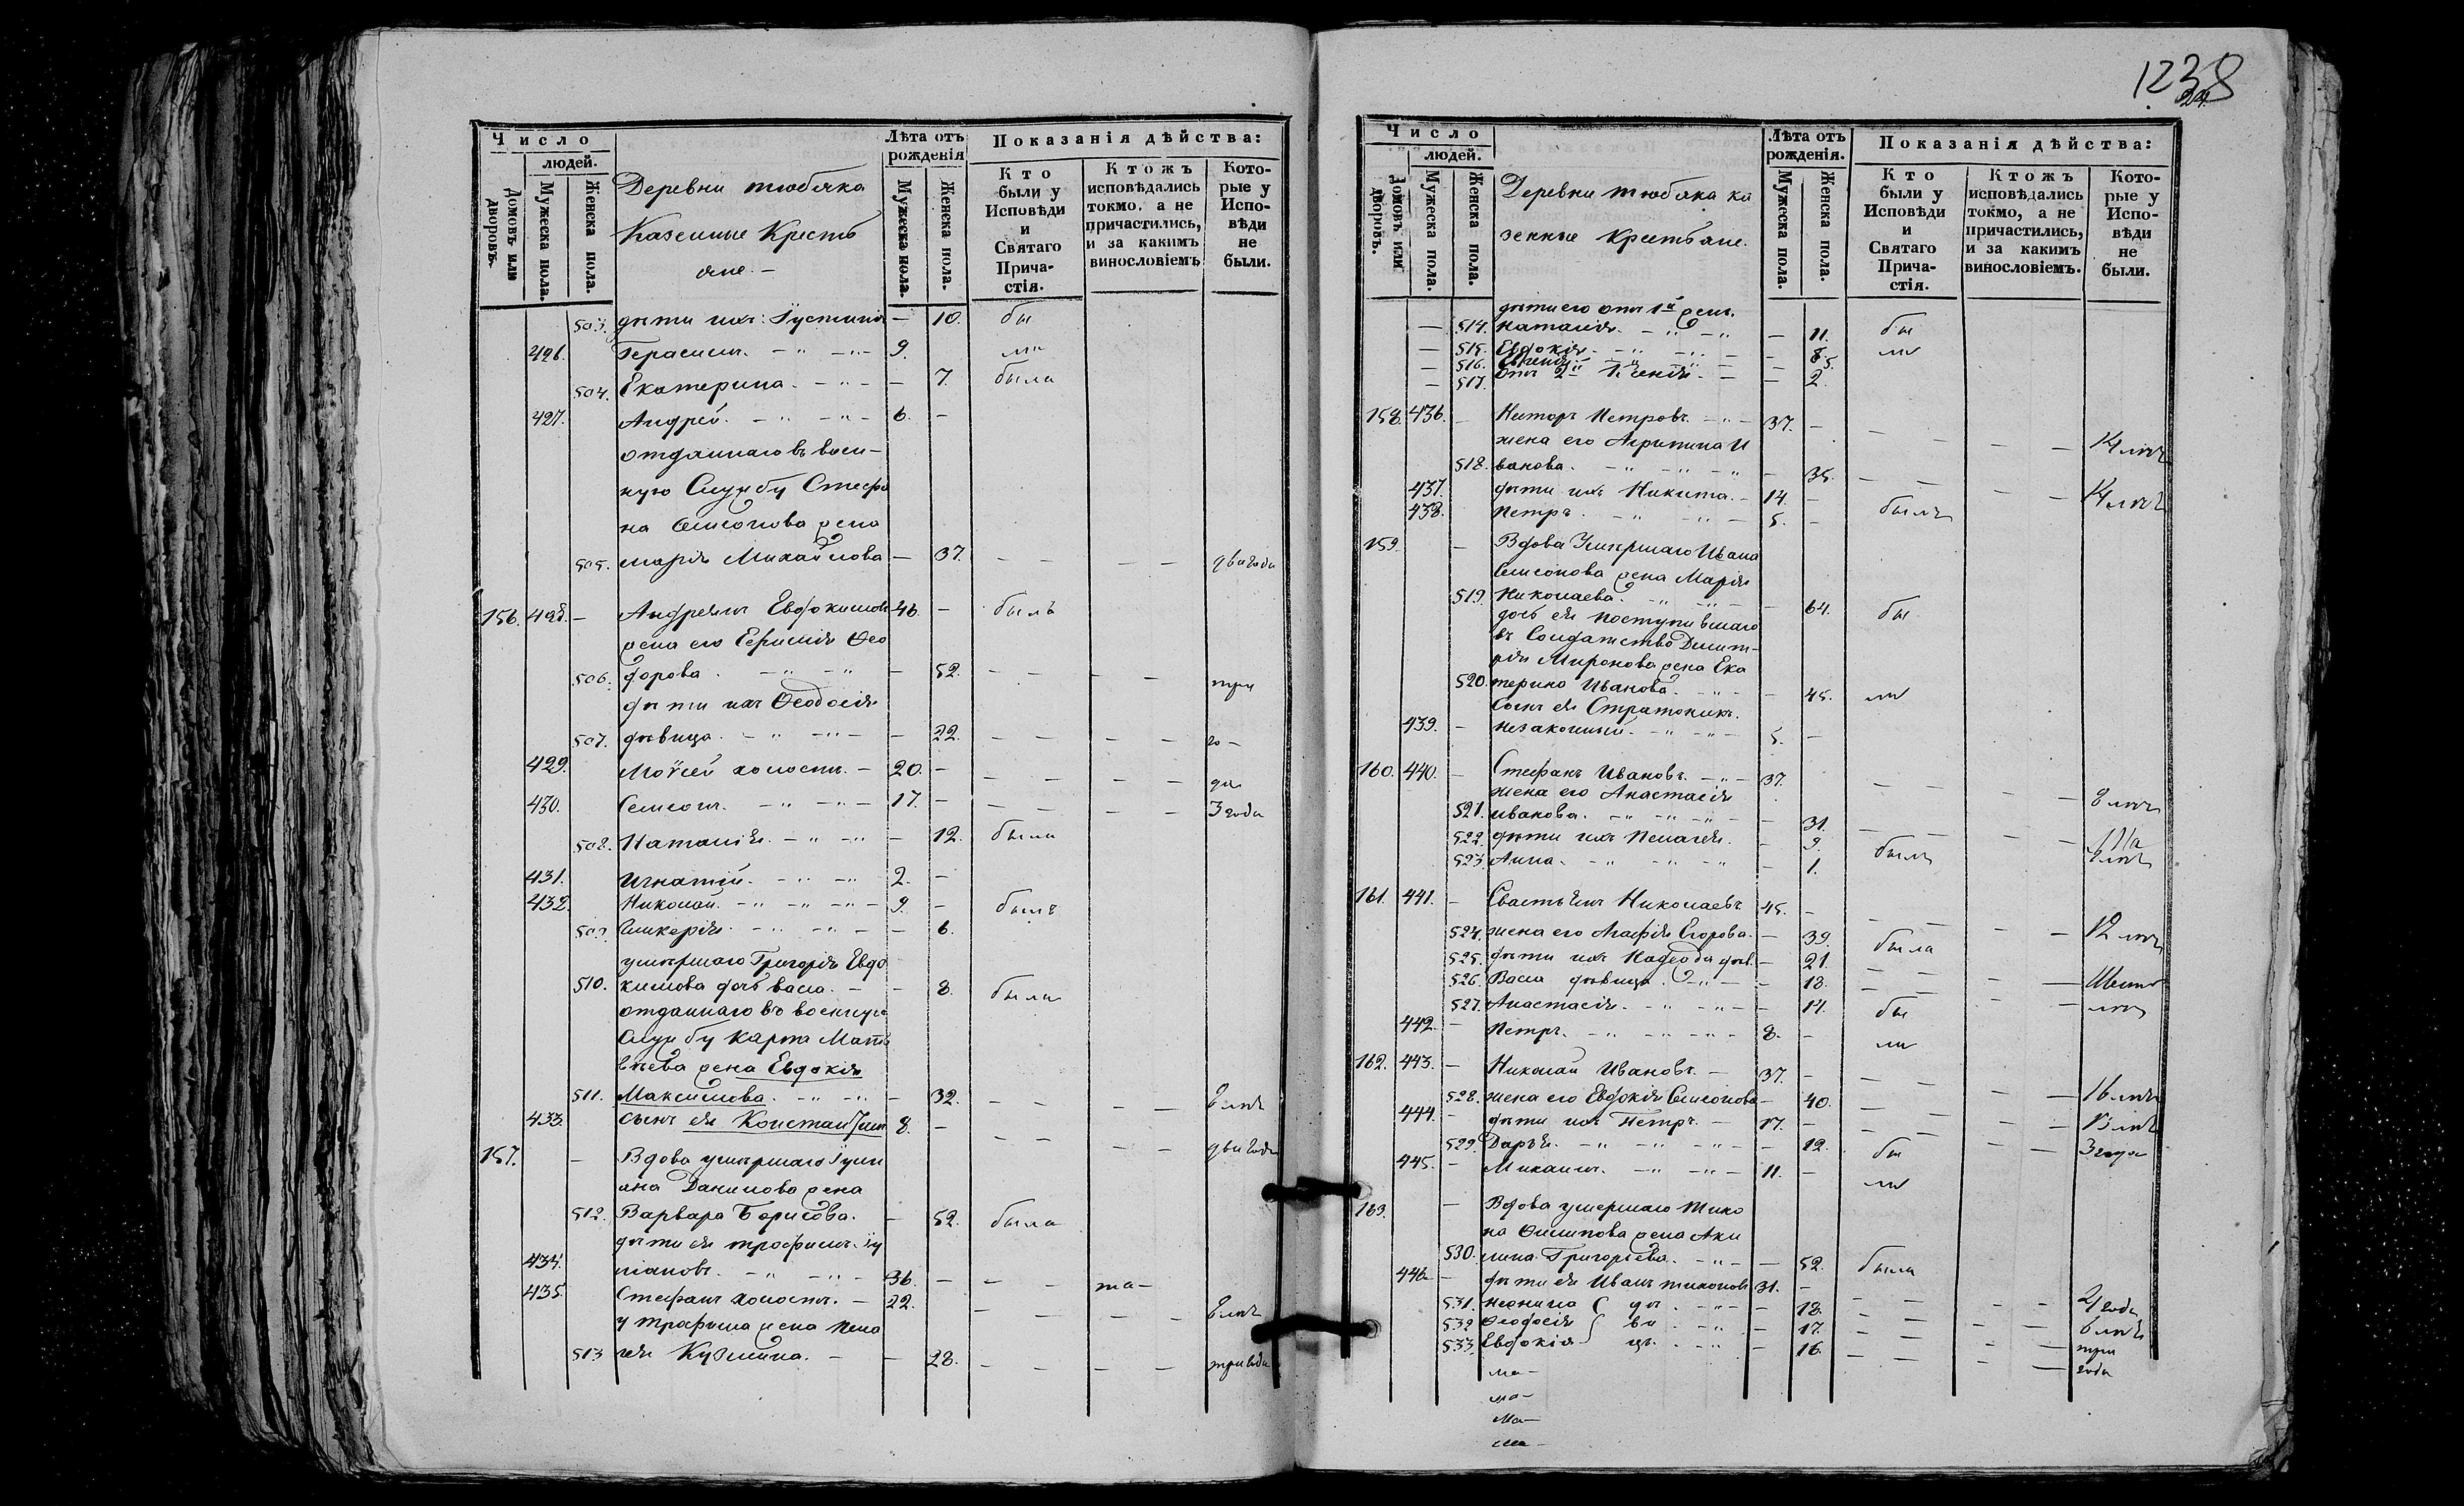 1238
24.
Число
людей.
Домовъ или дворовъ.
Мужеска пола.
Женска пола.
Деревни тюбяка
Казенные Кресть
яне. -
Лѣта отъ рожденія
Мужеска пола.
Женска пола.
Показанія дѣйства:
Кто были у Исповѣди и Святаго Причастія.
Ктожъ исповѣдались токмо, а не причастились, и за какимъ винословіемъ
Которые у Исповѣди не были.
503. дѣти ихъ: Іустина - 10. бы
426. Герасимъ. - 9. ли
504. Екатерина. - 7. была
427. Андрей. - 6. -
отданнаго въ воен-
ную Службу Стефа
на Самсонова жена
505. марія Михайлова - 37. - - - - два года
156. 428. - Андреянъ Евдокимовъ 46. - былъ
жена его Ѳео
506. дорова. - 52. - - - - три
дѣти ихъ Ѳеодосія
507. дѣвица. - 22. - - - - го-
429. Моѵсей холостъ. - 20. - - - - - да
430. Самсонъ. - 17. - - - - - 3 года
508. Наталія. - 12. была
431. Игнатій. - 2. -
432. Николай. - 9. - былъ
509. Гликерія. - 6.
умершаго Григорія Евдо
510. кимова дочь васса. - - 8. была
отданнаго въ военную
Службу Карпа Мат
вѣева жена Евдокія
511. Максимова. - 32. - - - - 8 лѣтъ
433. сынъ ея Константинъ 8. - - - - - два года
157. - Вдова умершаго Іули
ана Данилова жена
512. Варвара Борисова. - 52. была
дѣти ея трофимъ Іу
434. ліановъ. - 36. - - - та-
435. Стефанъ холостъ. - 22. - - - - 8 лѣтъ
у трофима жена Пела
513 гея Кузмина. - - 28. - - - - три года
Число
людей.
Домовъ или дворовъ.
Мужеска пола.
Женска пола.
Деревни тюбяка ка
зенные крестьяне.
Лѣта отъ рожденія.
Мужеска пола.
Женска пола.
Показанія дѣйства:
Кто были у Исповѣди и Святаго Причастія.
Ктожъ исповѣдались токмо, а не причастились, и за какимъ винословіемъ.
Которые у Исповѣди не были.
дѣти его отъ 1й жены
- 514. наталія. - - 11. бы
- 515. Евдокія. - - 8. ли
- 516. Евгенія - - 5.
- 517. Отъ 2й - - 2.
158. 436. - Несторъ Петровъ. - 37. - - - - 14 лѣтъ
жена его Агрипина И
518. ванова. - - 35. - - - - 14 лѣтъ
437. дѣти ихъ Никита. - 14. - былъ
438. Петръ. - 5. -
159. - Вдова Умершаго Ивана
Самсонова жена Марія
519. Николаева. - - 64. бы
дочь ея поступившаго
въ Солдатство Димит-
рія Миронова жена Ека
520. терина Иванова. - - 45. ли
Сынъ ея Стратоникъ.
439. - незаконный. - 5. -
160. 440. - Стефанъ Ивановъ. - 37. - - - - 8 лѣтъ
жена его Анастасія
521. иванова. - - 31. - - - -
522. дѣти ихъ Пелагея. - 9. былъ
523. Анна. - - 1.
161. 441. - Севастьянъ Николаевъ 45. - - - - - 12 лѣтъ
524. жена его Агафія Егорова. - 39. была
525. дѣти ихъ Надежда дѣв. - 21. - - - -
526. Васса дѣвица. - 18. - - - - лѣтъ
527. Анастасія. - - 14. бы
442. - Петръ. - 8. - ли
162. 443. - Николай Ивановъ. - 37. - - - - 16 лѣтъ
528. жена его Евдокія Самсонова - 40. - - - -
444. - дѣти ихъ Петръ. - 17. - - - - 3 года
529. Дарья. - - 12. бы
445. - Михаилъ. - 11. - ли
163. - Вдова умершаго Тихо
на Филипова жена Аки
530. лина Григорьева. - - 52. была
446 - дѣти ея Иванъ тихоновъ 31. - - - - 2 года
531. неонила дѣ - 18. - - - - 6 лѣтъ
532 Ѳеодосія ви - 17. - - - - три
533. Евдокія цы. - 16. - - - - года
ма-
ма-
ма-
ма-